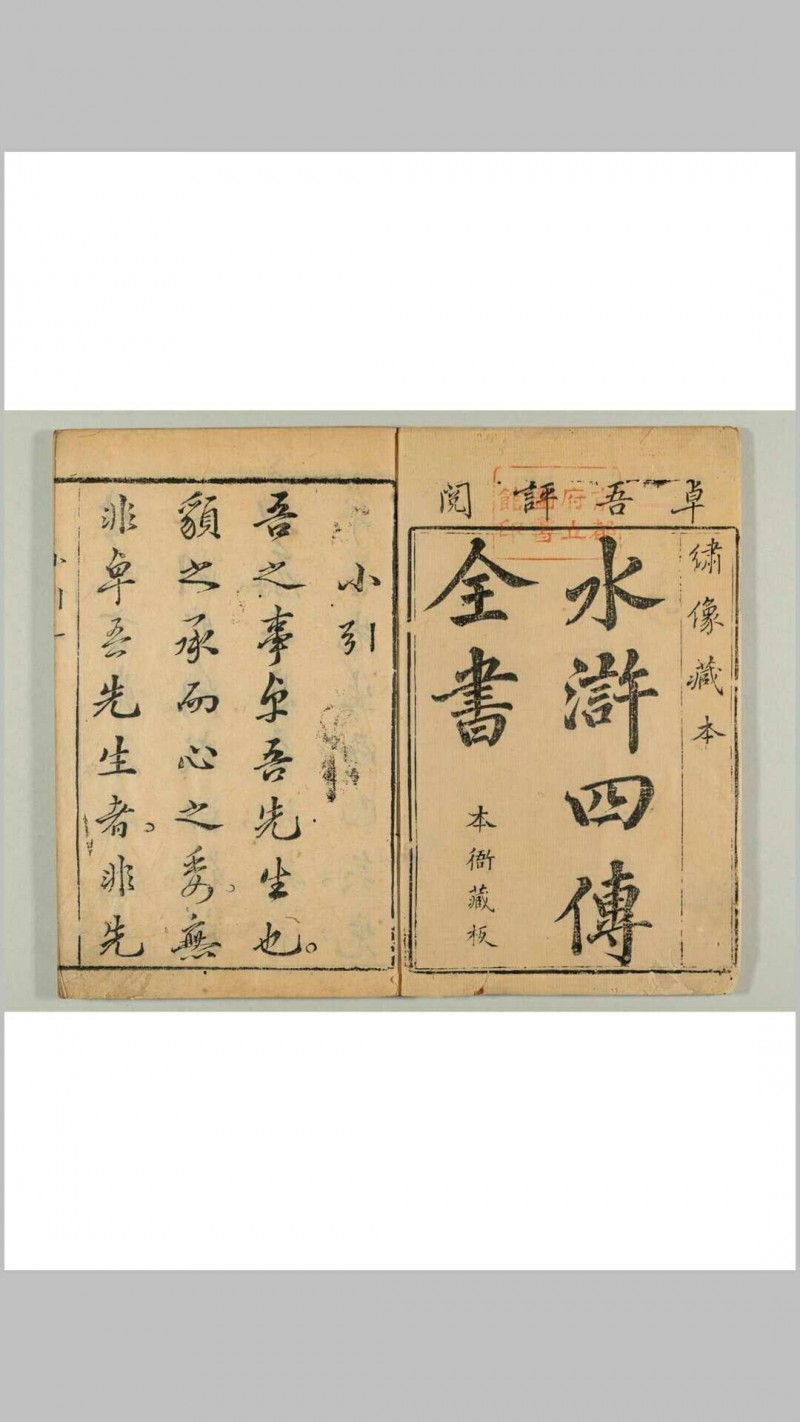 卓吾評閱
繡像藏本
水滸四傳
全書
本衙藏板
京都
府立
圖書
館印
小引
吾之事卓吾先生也。
貌之承而心之委。無
非卓吾先生者。非先
小引一